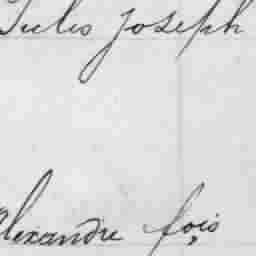 Jules Joseph
Alexandre fois